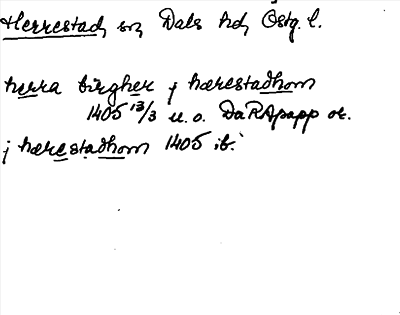 Herrestad, sn, Dals hd, Östg. l.
herra birgher j hærestadhom
1405 13/3 u. o. DaRApapp or.
j hærestadhom 1405 ib.